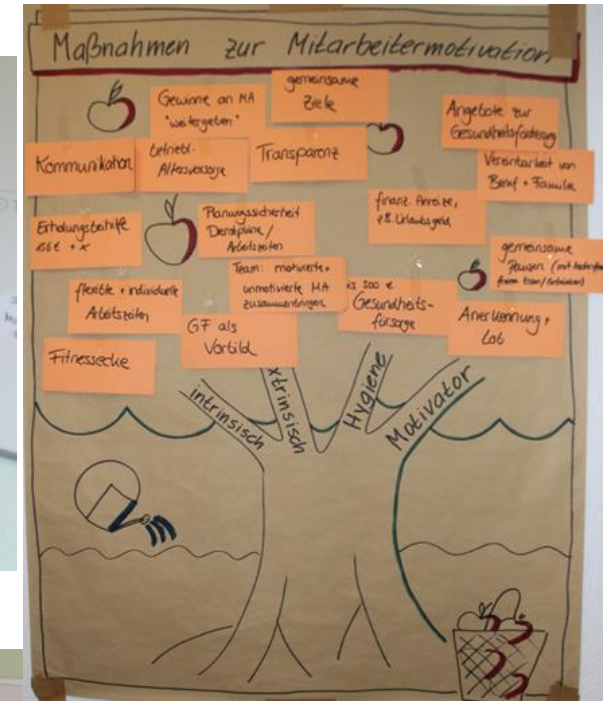 Maßnahmen zur Mitarbeitermotivation
Gewinne an MA
"weitergeben"
gemeinsame
Ziele
Angebote zur
Gesundheitsförderung
Kommunikation
betriebl.
Altersvorsorge
Transparenz
Vereinbarkeit von
Beruf + Familie
Erholungsbeihilfe
156 € + x
Planungssicherheit
Dienstpläne /
Arbeitszeiten
finanz. Anreize,
z.B. Urlaubsgeld
gemeinsame
Pausen (mit
flexible + individuelle
Arbeitszeiten
Team: motivierte +
unmotivierte MA
zusammenbringen
is 500 €
Gesundheits-
fürsorge
Anerkennung +
Lob
Fitnessecke
GF als
Vorbild
intrinsisch
xtrinsisch
Hygiene
Motivator